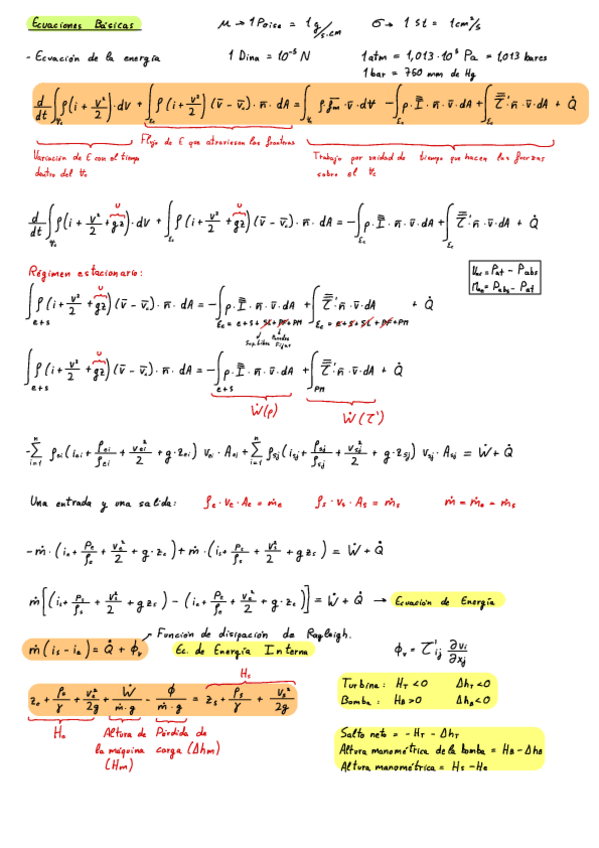 Ecuaciones Básicas
μ → 1 Poise = 1 g/s·cm
σ → 1 St = 1 cm²/s
- Ecuación de la energía
1 Dina = 10⁻⁵ N
1 atm = 1,013·10⁵ Pa = 1,013 bares
1 bar = 760 mm de Hg
d/dt ∫ ρ(i + v²/2)·dV + ∫ ρ(i + v²/2)(v̄ - v̄c)·n̄·dA = ∫ ρ f̄m·v̄·dV - ∫ p·I̿·n̄·v̄·dA + ∫ τ̿'·n̄·v̄·dA + Q̇
Flujo de E que atraviesan las fronteras
Variación de E con el tiempo dentro del Vc
Trabajo por unidad de tiempo que hacen las fuerzas sobre el Vc
d/dt ∫ ρ(i + v²/2 + gz)·dV + ∫ ρ(i + v²/2 + gz)(v̄ - v̄c)·n̄·dA = - ∫ p·I̿·n̄·v̄·dA + ∫ τ̿'·n̄·v̄·dA + Q̇
Régimen estacionario:
∫ ρ(i + v²/2 + gz)(v̄ - v̄c)·n̄·dA = - ∫ p·I̿·n̄·v̄·dA + ∫ τ̿'·n̄·v̄·dA + Q̇
e+s Σc = e+s+SL+PF+PM Σc = e+s+SL+PF+PM
Sup. Libre Paredes Fijas
∫ ρ(i + v²/2 + gz)(v̄ - v̄c)·n̄·dA = - ∫ p·I̿·n̄·v̄·dA + ∫ τ̿'·n̄·v̄·dA + Q̇
e+s e+s PM
Ẇ(p) Ẇ(τ')
-Σ ρei(iei + pei/ρei + vei²/2 + g·zei) vei·Aei + Σ ρsj(isj + psj/ρsj + vsj²/2 + g·zsj) vsj·Asj = Ẇ + Q̇
Una entrada y una salida: ρe·ve·Ae = ṁe ρs·vs·As = ṁs ṁ = ṁe = ṁs
-ṁ·(ie + pe/ρe + ve²/2 + g·ze) + ṁ·(is + ps/ρs + vs²/2 + g zs) = Ẇ + Q̇
ṁ[(is + ps/ρs + vs²/2 + g zs) - (ie + pe/ρe + ve²/2 + g·ze)] = Ẇ + Q̇ → Ecuación de Energía
Función de disipación de Rayleigh.
ṁ(is - ie) = Q̇ + ϕv Ec. de Energía Interna ϕv = τ'ij ∂vi/∂xj
Hs
ze + pe/γ + ve²/2g + Ẇ/ṁ·g - ϕ/ṁ·g = zs + ps/γ + vs²/2g
He Altura de la máquina (Hm) Pérdida de carga (Δhm)
Turbina: HT < 0 ΔhT < 0
Bomba: HB > 0 ΔhB < 0
Salto neto = - HT - ΔhT
Altura manométrica de la bomba = HB - ΔhB
Altura manométrica = Hs - He